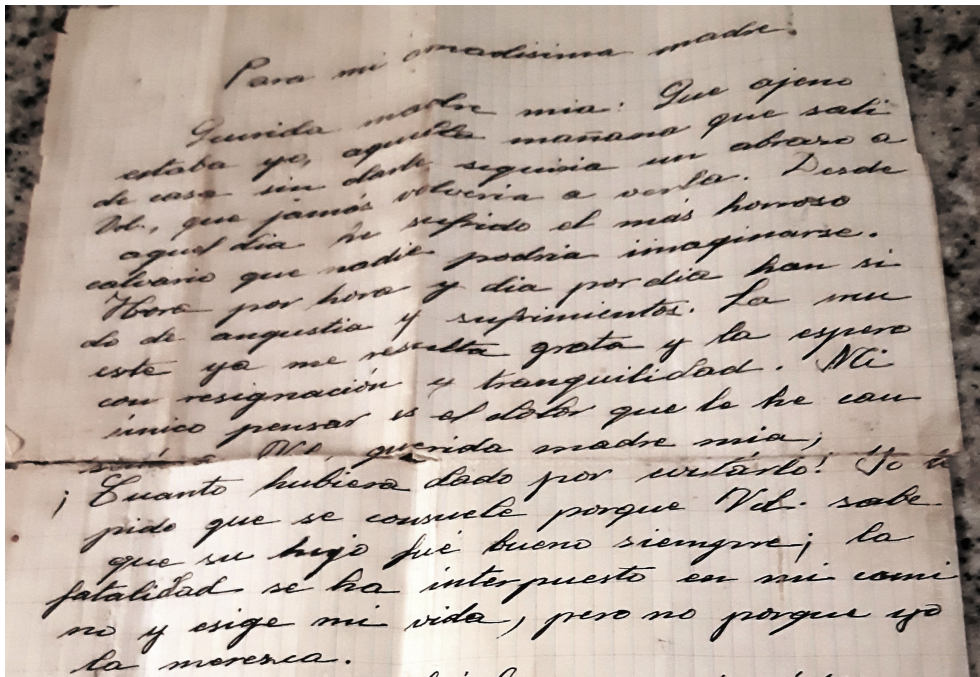 Para mi amadisima madre.
Querida madre mia: Que ajeno
estaba yo, aquella mañana que sali
de casa sin darle siquiria un abrazo a
Vd., que jamás volveria a verla. Desde
aquel dia he sufrido el más horroso
calvario que nadie podria imaginarse.
Hora por hora y dia por dia han si
do de angustia y sufrimientos. La mu
erte ya me resulta grata y la espero
con resignación y tranquilidad. Mi
único pensar es el dolor que le he cau
sado a Vd., querida madre mia;
¡Cuanto hubiera dado por evitárlo! Yo le
pido que se consuele porque Vd. sabe
que su hijo fué bueno siempre; la
fatalidad se ha interpuesto en mi cami
no y esige mi vida, pero no porque yo
la meresca.